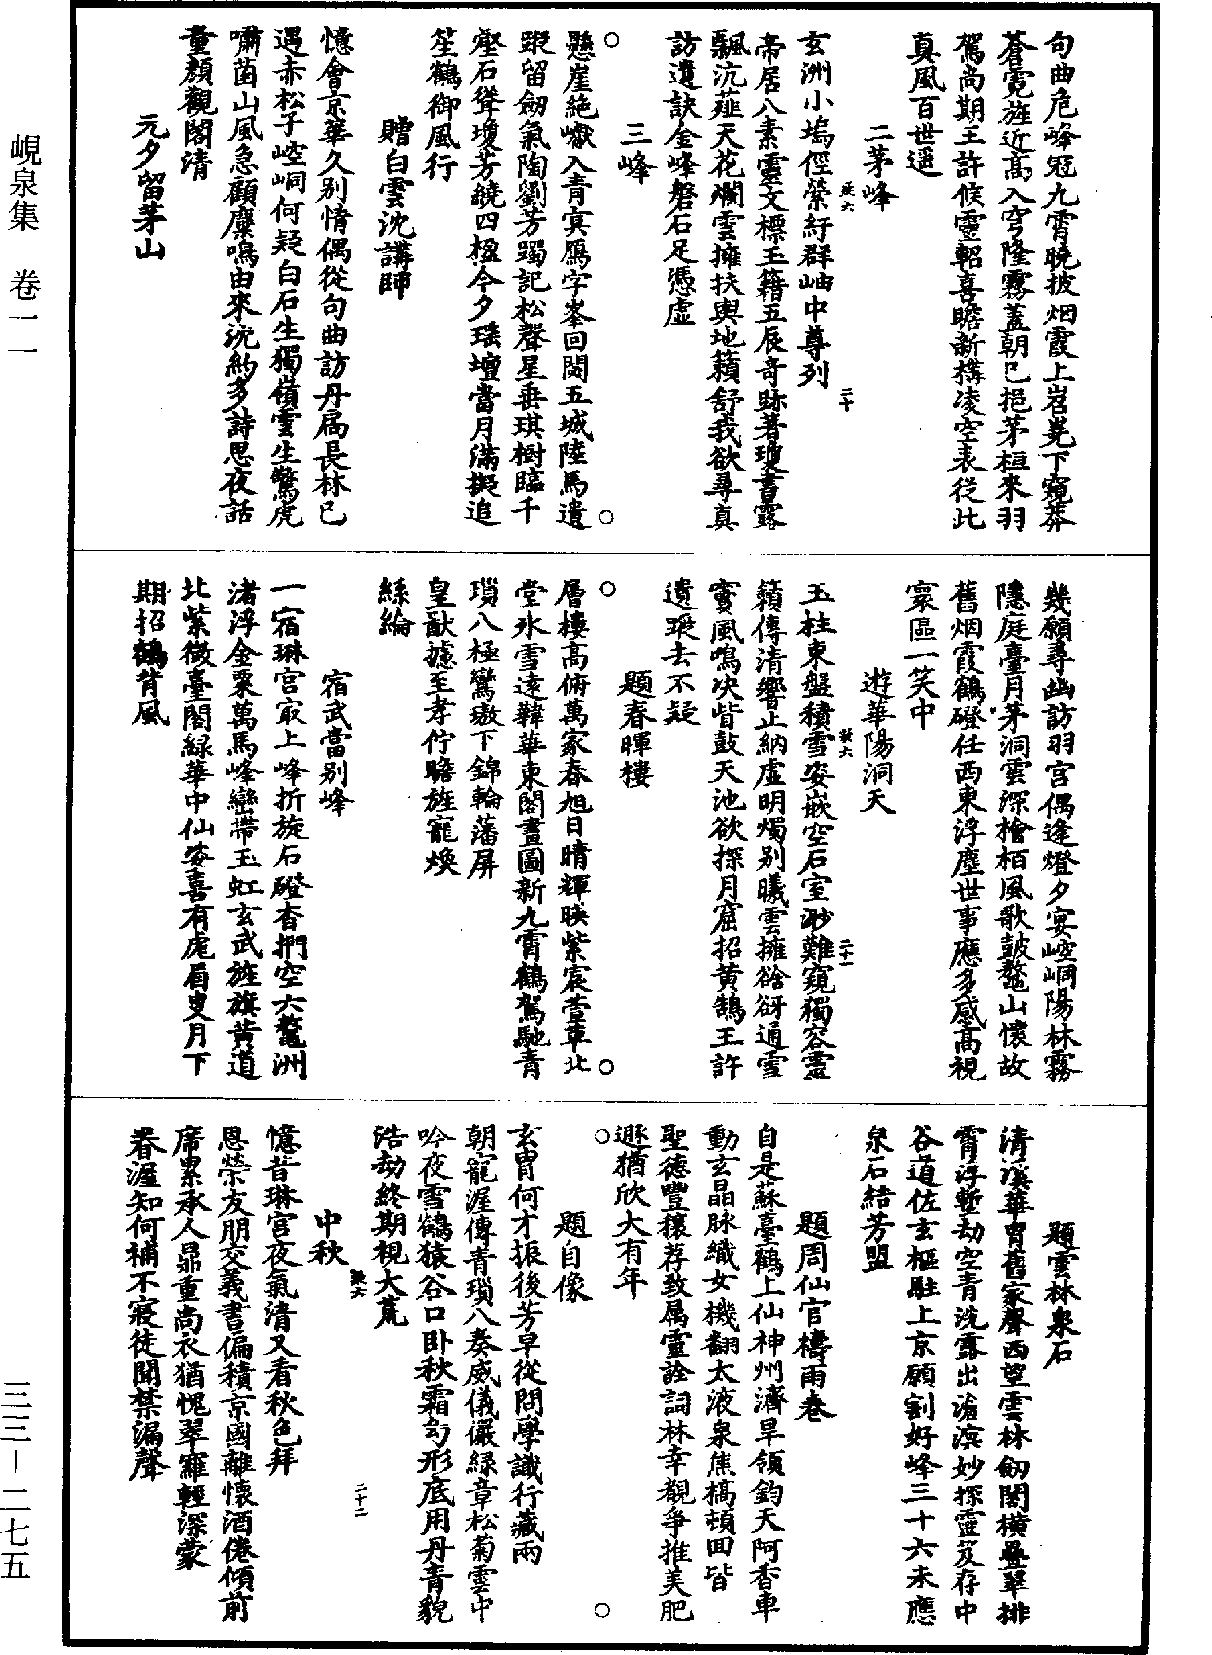 句曲危峰冠九霄晚披烟霞上岧嶤下窺莽
蒼霓旌近高入穹隆霧蓋朝已挹茅桓來羽
駕尚期王許候靈軺喜瞻新構凌空表從此
真風百世遥
二茅峰
玄洲小塢徑縈紆群岫中尊列
帝居八素靈文標玉籍五辰奇跡著瓊書露
飄沆薤天花爛雲擁扶輿地籟舒我欲尋真
訪遺訣金峰磐石足憑虛
三峰
懸崖絶巘入青冥鴈字峯回閲五城陸馬遺
蹤留劒氣陶劉芳躅記松聲星垂琪樹臨千
壑石聳瓊芳繞四楹今夕瑤壇當月滿擬追
笙鶴御風行
贈白雲沈講師
憶會京華久别情偶從句曲訪丹扃長林已
遇赤松子崆峒何疑白石生獨嶺雲生驚虎
嘯菌山風急顧麋鳴由來沈約多詩思夜話
童顏觀閣清
元夕留茅山
幾願尋幽訪羽宫偶逢燈夕宴崆峒陽林霧
隱庭臺月茅洞雲深檜栢風歌皷鼇山懷故
舊烟霞鶴磴任西東浮塵世事應多感高視
寰區一笑中
遊華陽洞天
玉柱東盤積雪姿嵌空石室渺難窺獨容靈
籟傳清響止納虛明燭别曦雲擁谽谺通雪
竇風鳴決眥鼓天池欲探月窟招黄鵠王許
遺踪去不疑
題春暉樓
層樓高俯萬家春旭日晴輝映紫宸萱草北
堂氷雪遠韡華東閣畫圖新九霄鶴駕馳青
瑣八極鸞璈下錦輪藩屏
皇猷攄至孝佇瞻旌寵焕
絲綸
宿武當别峰
一宿琳宫㝡上峰折旋石磴杳捫空六鼇洲
渚浮金粟萬馬峰巒帶玉虹玄武旌旗黄道
北紫微臺閣緑華中仙姿喜有庞眉叟月下
期招鶴背風
題雲林泉石
清溪華胄舊家聲西望雲林劒閣横疊翠排
霄浮塹劫空青洗露出滄溟妙探靈笈存中
谷道佐玄樞駐上京願割好峰三十六未應
泉石結芳盟
題周仙官禱雨卷
自是蘇臺鶴上仙神州濟旱領鈞天阿香車
動玄晶脉織女機翻太液泉焦槁頓回皆
聖德豐穰荐致属靈詮詞林幸覩争推美肥
遯猶欣大有年
題自像
玄胄何才振後芳早從問學識行藏兩
朝寵渥傳青瑣八奏威儀儼緑章松菊雲中
吟夜雪鶴猿谷口卧秋霜幻形底用丹青貌
浩劫終期視大荒
中秋
憶昔琳宫夜氣清又看秋色拜
恩榮友朋交義書偏積京國離懷酒倦傾前
席累承人鼎重尚衣猶愧翠羅輕深蒙
春渥知何補不寐徒聞禁漏聲
峴泉集 卷一一
三三－二七五